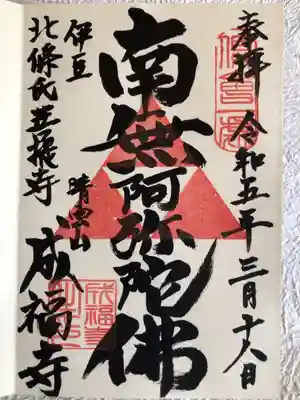 奉拝 令和五年三月十八日
南無阿弥陀佛
伊豆
北條氏菩提寺
晴雲山
成福寺